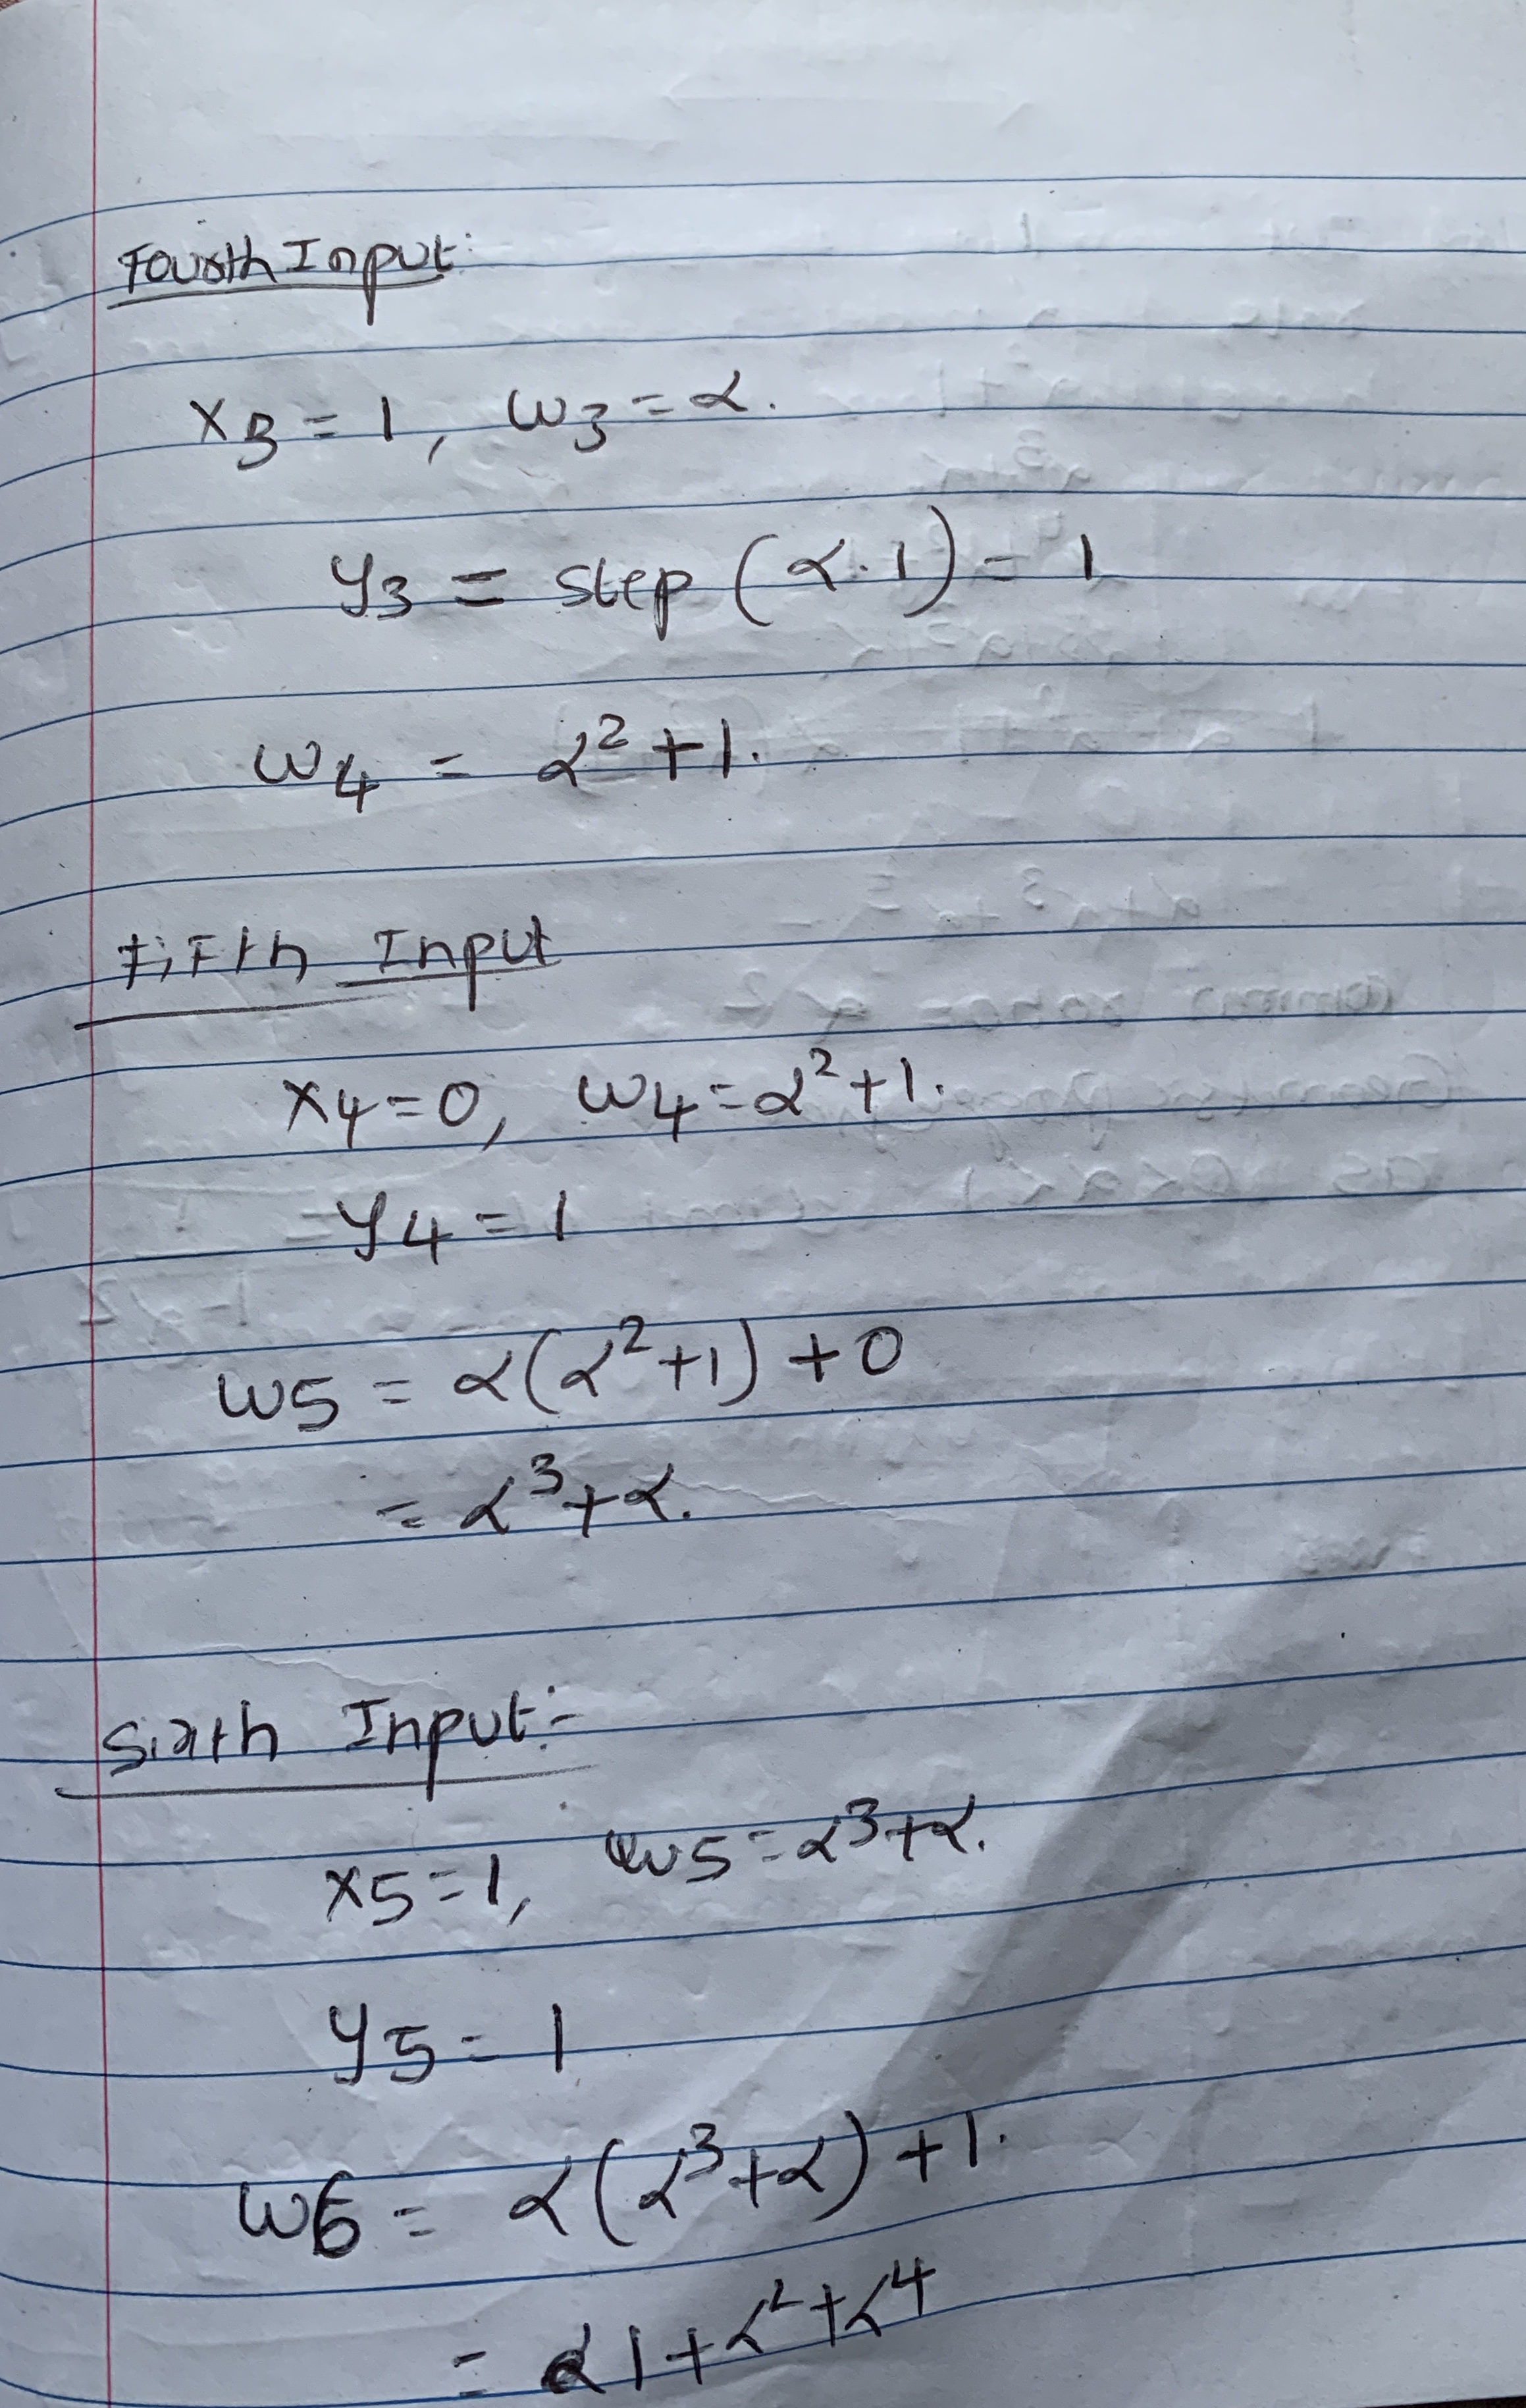 Fourth Input:
x3 = 1, w3 = α.
y3 = step (α.1) = 1
w4 = α² + 1.
Fifth Input
x4 = 0, w4 = α² + 1.
y4 = 1
w5 = α(α² + 1) + 0
= α³ + α.
Sixth Input:-
x5 = 1, w5 = α³ + α.
y5 = 1
w6 = α(α³ + α) + 1.
= 1 + α² + α⁴